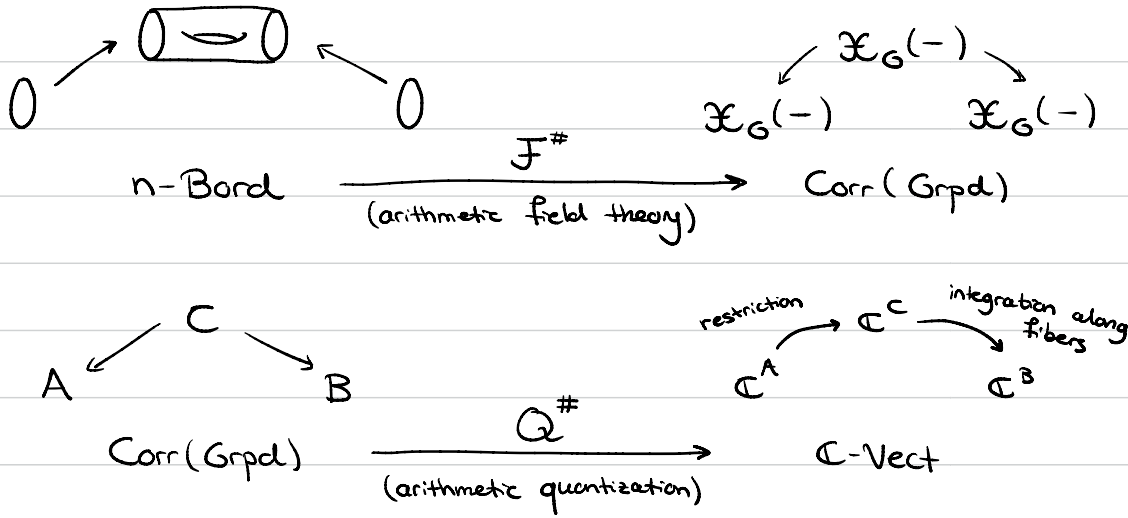 𝔛_G(-)
𝔛_G(-) 𝔛_G(-)
n-Bord F^# Corr(Grpd)
(arithmetic field theory)
restriction integration along fibers
C ℂ^C
A B ℂ^A ℂ^B
Corr(Grpd) Q^# ℂ-Vect
(arithmetic quantization)